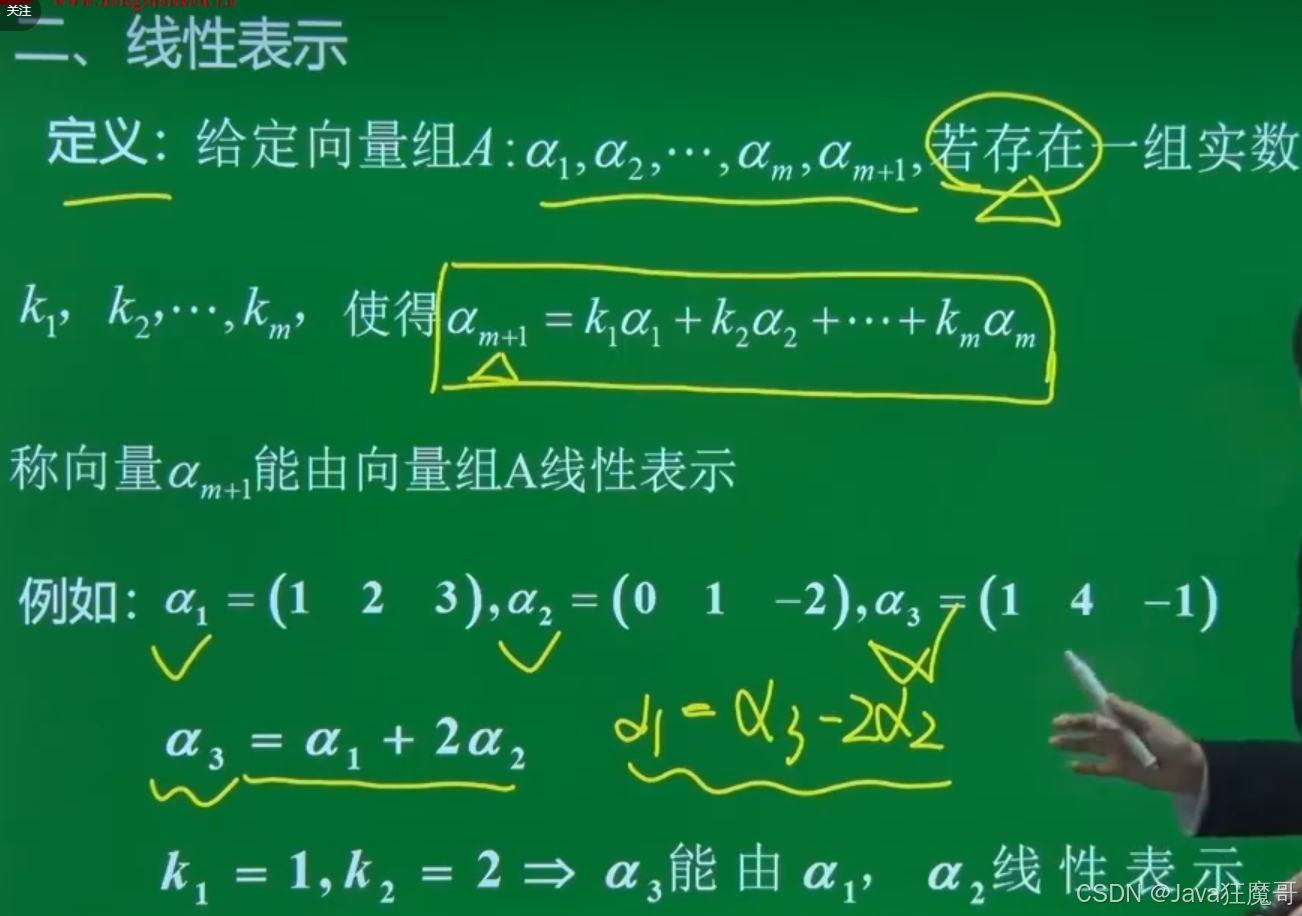 关注
二、线性表示
定义：给定向量组A:α₁,α₂,⋯,αₘ,αₘ₊₁,若存在一组实数
k₁, k₂,⋯,kₘ, 使得αₘ₊₁ = k₁α₁ + k₂α₂ +⋯+ kₘαₘ
称向量αₘ₊₁能由向量组A线性表示
例如：α₁ = (1 2 3),α₂ = (0 1 −2),α₃ = (1 4 −1)
α₃ = α₁ + 2α₂
α₁ = α₃ − 2α₂
k₁ = 1, k₂ = 2 ⇒ α₃能由α₁, α₂线性表示
CSDN @Java狂魔哥